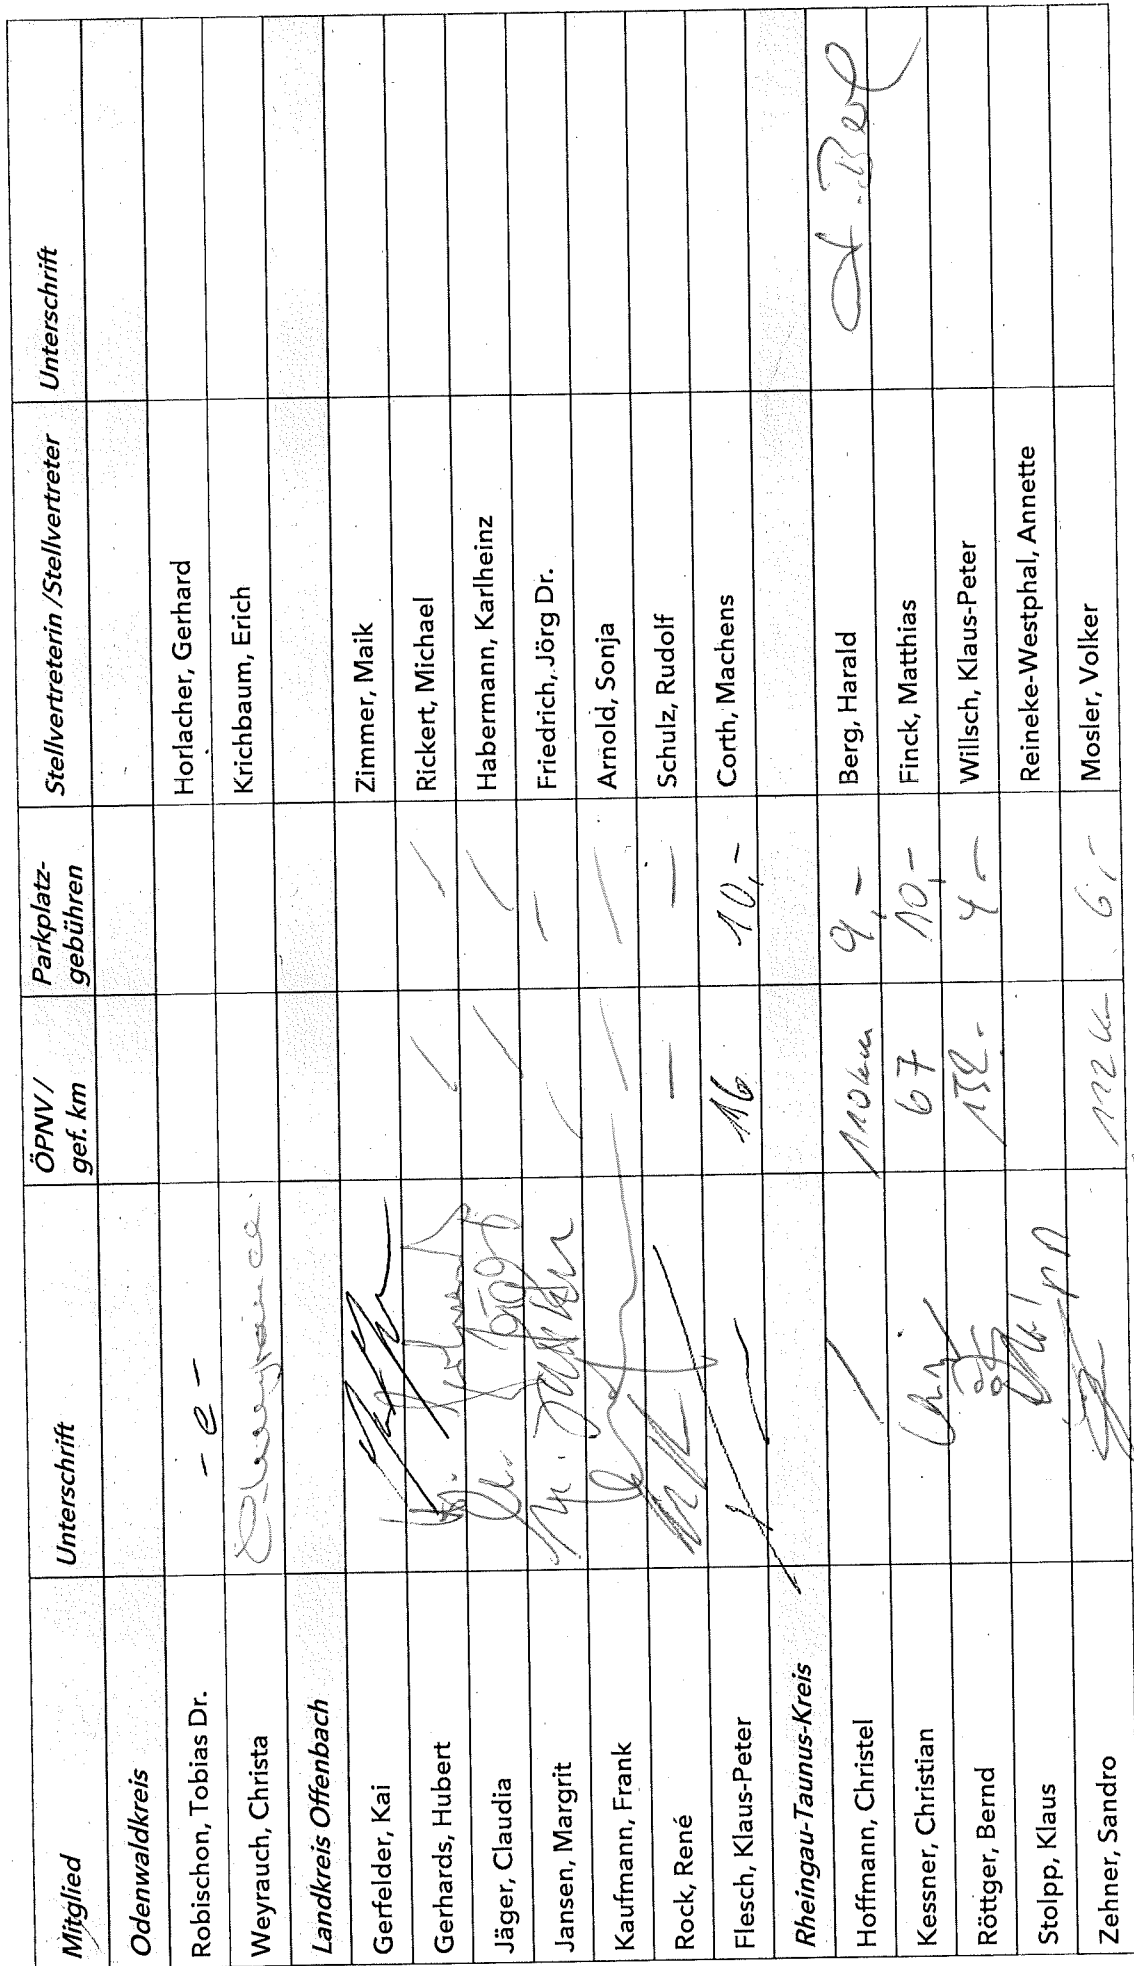 Mitglied Unterschrift ÖPNV / gef. km Parkplatz-gebühren Stellvertreterin /Stellvertreter Unterschrift
Odenwaldkreis
Robischon, Tobias Dr. - e - Horlacher, Gerhard
Weyrauch, Christa Krichbaum, Erich
Landkreis Offenbach
Gerfelder, Kai Zimmer, Maik
Gerhards, Hubert / / Rickert, Michael
Jäger, Claudia Cl. Jäger / / Habermann, Karlheinz
Jansen, Margrit M. Jansen / – Friedrich, Jörg Dr.
Kaufmann, Frank / / Arnold, Sonja
Rock, René – – Schulz, Rudolf
Flesch, Klaus-Peter 16 10,- Corth, Machens
Rheingau-Taunus-Kreis
Hoffmann, Christel / 110km 9,- Berg, Harald
Kessner, Christian 67 10,- Finck, Matthias
Röttger, Bernd 152.- 4 - Willsch, Klaus-Peter
Stolpp, Klaus Reineke-Westphal, Annette
Zehner, Sandro 112 km 6,- Mosler, Volker